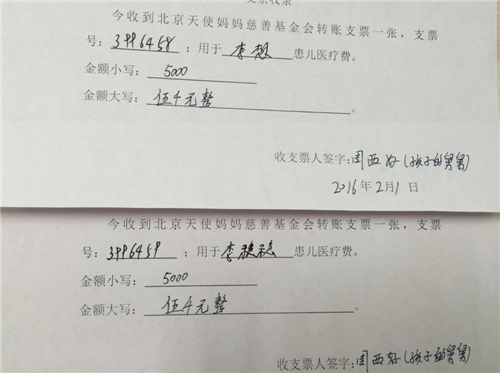 今收到北京天使妈妈慈善基金会转账支票一张，支票
号：3996458；用于李想患儿医疗费。
金额小写：5000
金额大写：伍千元整。
收支票人签字：闫西好（孩子的舅舅）
2016年2月1日
今收到北京天使妈妈慈善基金会转账支票一张，支票
号：3996459；用于李稳稳患儿医疗费。
金额小写：5000
金额大写：伍千元整。
收支票人签字：闫西好（孩子的舅舅）